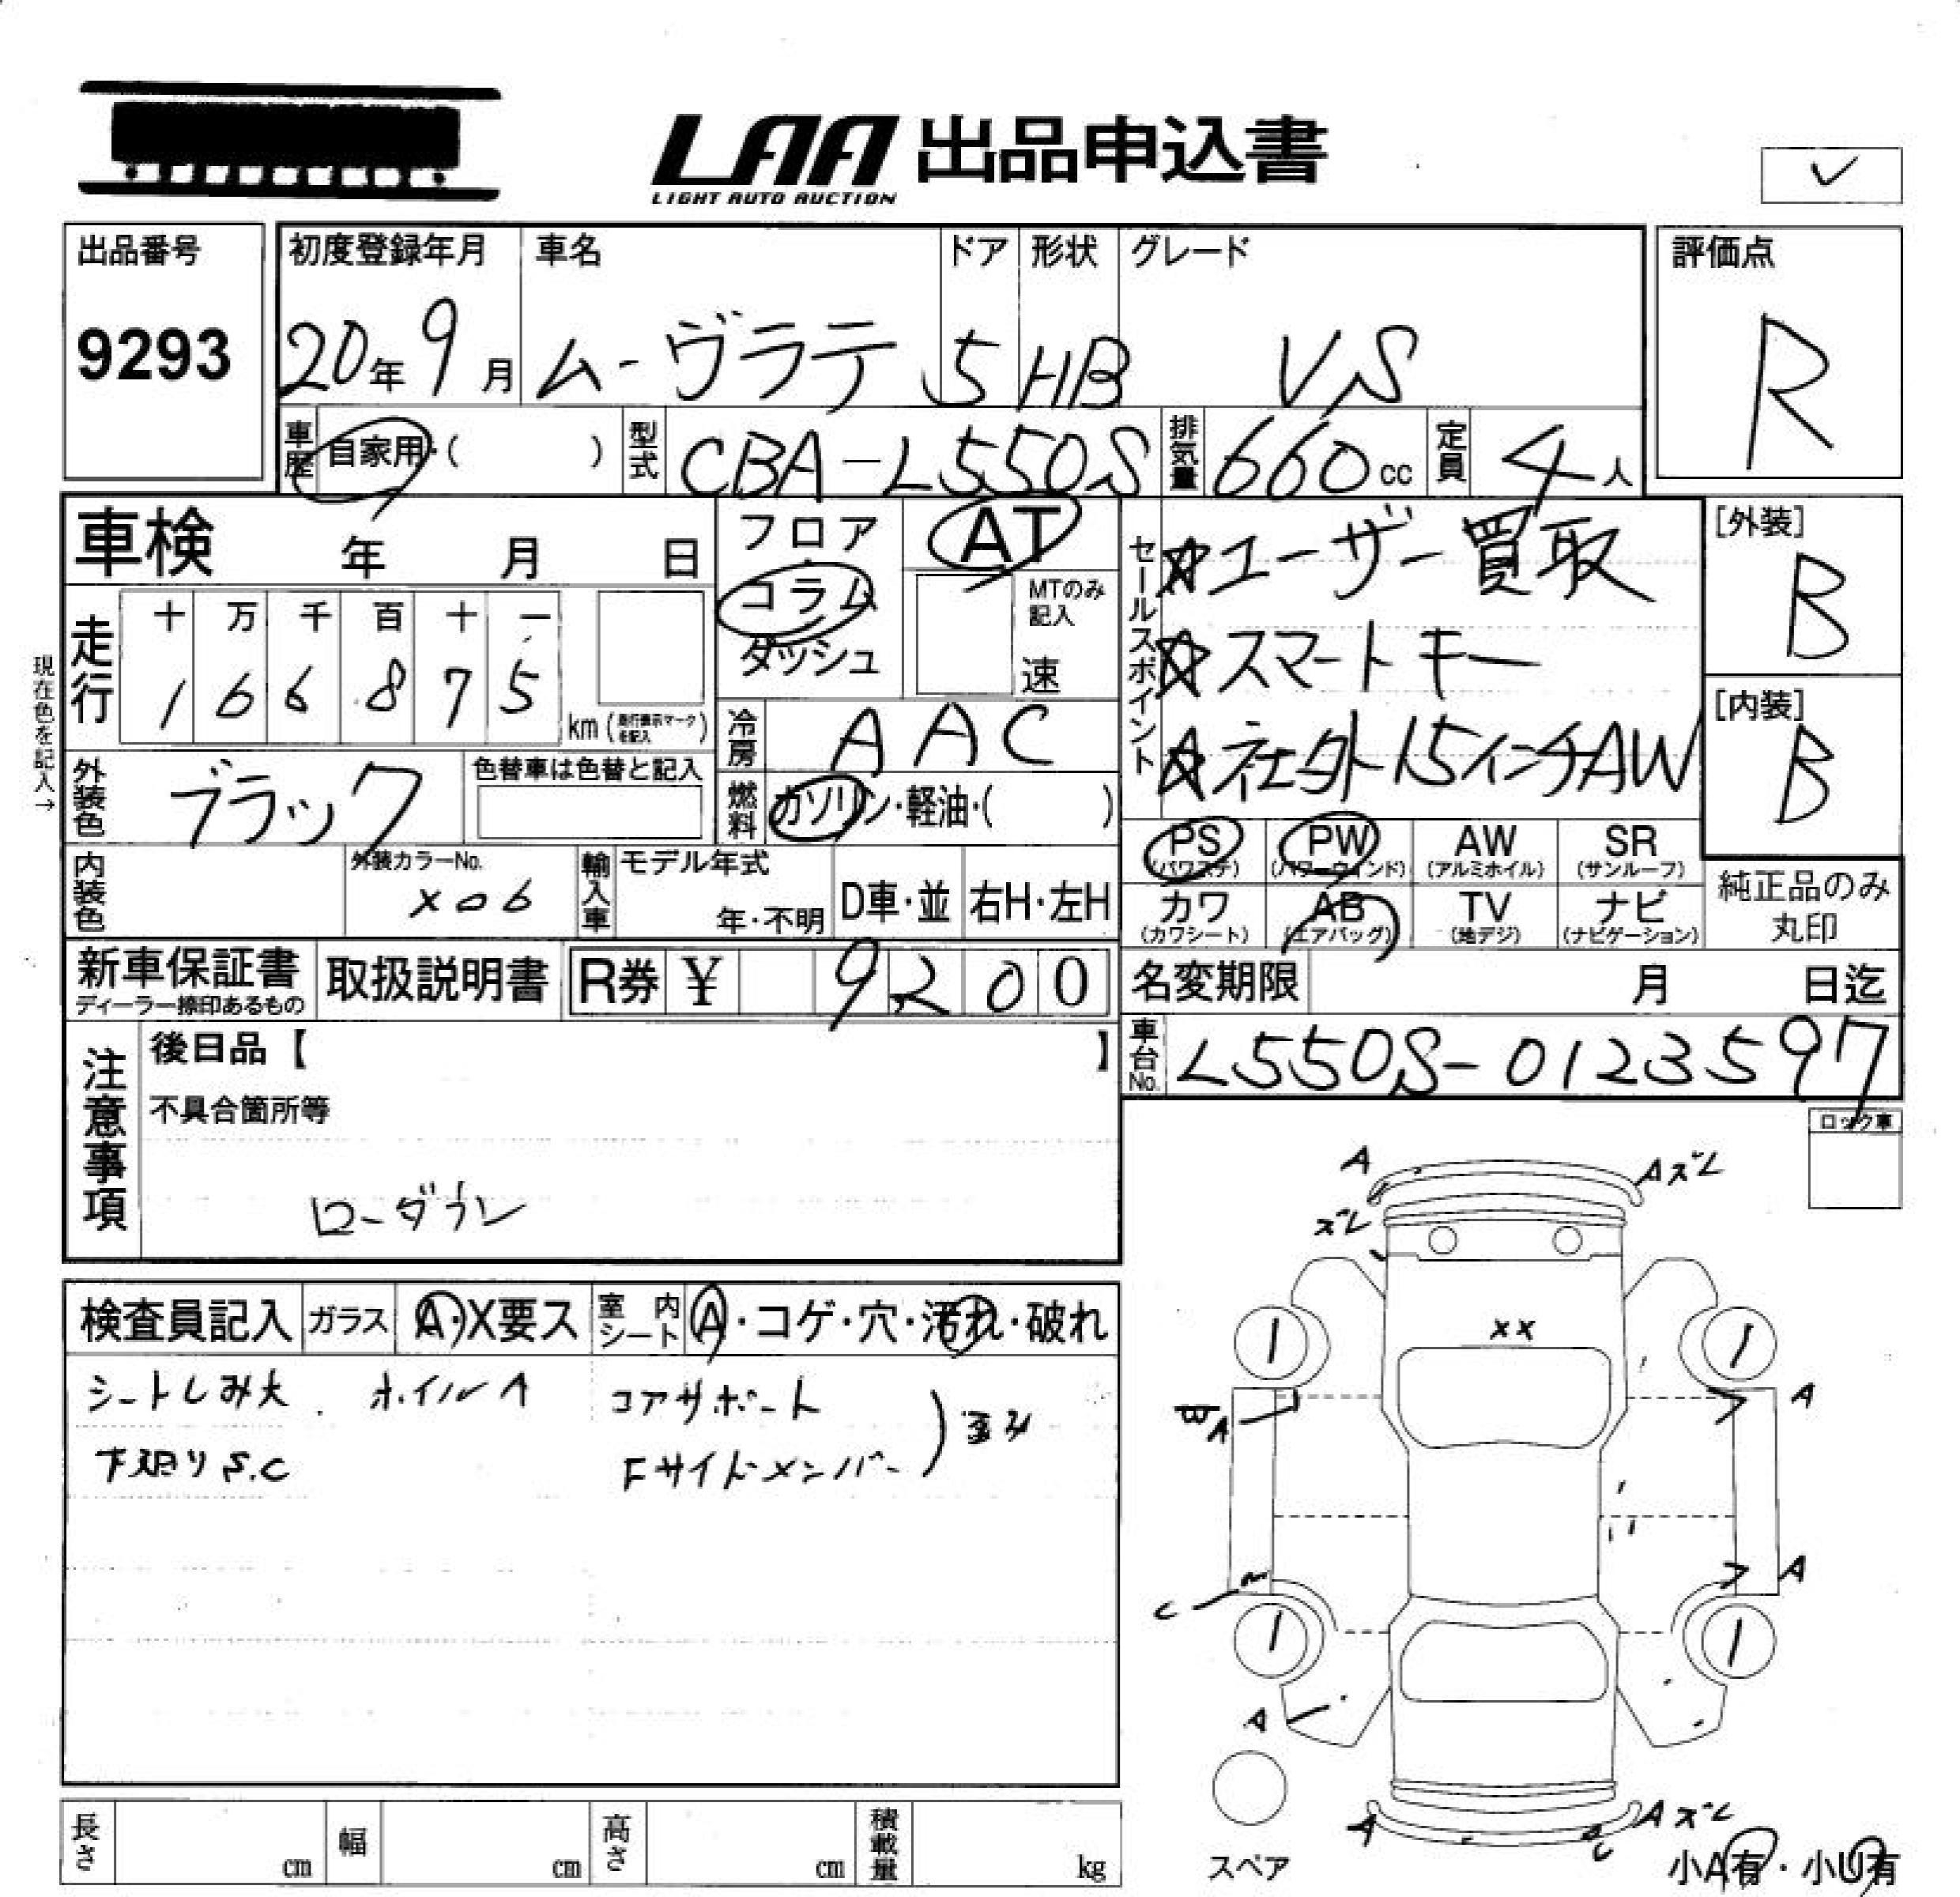 LAA 出品申込書
LIGHT AUTO AUCTION
✓
出品番号
9293
初度登録年月 車名 ドア 形状 グレード
20年 9月 ムーヴラテ 5 HB VS
評価点
R
車歴 自家用・( ) 型式 CBA-L550S 排気量 660cc 定員 4人
車検 年 月 日
フロア
コラム
ダッシュ
AT
MTのみ記入
速
セールスポイント
☆ユーザー買取
☆スマートキー
☆社外15インチAW
[外装]
B
[内装]
B
現在色を記入→
走行 十 万 千 百 十 一
1 6 6 8 7 5 km (走行表示マークを記入)
冷房 AAC
外装色 ブラック 色替車は色替と記入
燃料 ガソリン・軽油・( )
PS (パワステ) PW (パワーウインド) AW (アルミホイル) SR (サンルーフ)
カワ (カワシート) AB (エアバッグ) TV (地デジ) ナビ (ナビゲーション)
純正品のみ
丸印
内装色 外装カラーNo. X06 輸入車 モデル年式 年・不明 D車・並 右H・左H
新車保証書 ディーラー捺印あるもの 取扱説明書 R券 ¥ 9200
名変期限 月 日迄
車台No. L550S-0123597
注意事項
後日品【 】
不具合箇所等
ローダウン
ロック車
検査員記入 ガラス A・X要ス 室内シート A・コゲ・穴・汚れ・破れ
シートしみ大 ホイルA コアサポート
下廻りS.C Fサイドメンバー
歪み
A Aズレ
ズレ
XX
A A
C A
A
A Aズレ
C
スペア
小A有・小U有
長さ cm 幅 cm 高さ cm 積載量 kg